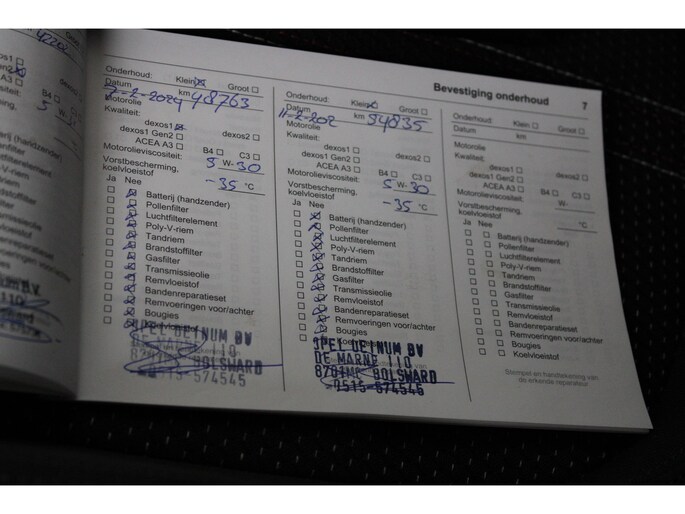 Bevestiging onderhoud 7
Onderhoud: Klein ☒ Groot ☐
Datum km
7-2-2024 48763
Motorolie
Kwaliteit:
dexos1 ☒
dexos1 Gen2 ☐ dexos2 ☐
ACEA A3 ☐ B4 ☐ C3 ☐
Motorolieviscositeit: 5 W- 30
Vorstbescherming,
koelvloeistof -35 °C
Ja Nee
☐ ☒ Batterij (handzender)
☐ ☒ Pollenfilter
☐ ☒ Luchtfilterelement
☐ ☒ Poly-V-riem
☐ ☒ Tandriem
☐ ☒ Brandstoffilter
☐ ☒ Gasfilter
☐ ☒ Transmissieolie
☐ ☒ Remvloeistof
☐ ☒ Bandenreparatieset
☐ ☒ Remvoeringen voor/achter
☐ ☒ Bougies
☐ ☒ Koelvloeistof
OPEL DETNUM BV
DE MARNE 110
BOLSWARD
0515-574545
Onderhoud: Klein ☒ Groot ☐
Datum km
11-2-202 54835
Motorolie
Kwaliteit:
dexos1 ☒
dexos1 Gen2 ☐ dexos2 ☐
ACEA A3 ☐ B4 ☐ C3 ☐
Motorolieviscositeit: 5 W- 30
Vorstbescherming,
koelvloeistof -35 °C
Ja Nee
☐ ☒ Batterij (handzender)
☐ ☒ Pollenfilter
☐ ☒ Luchtfilterelement
☐ ☒ Poly-V-riem
☐ ☒ Tandriem
☐ ☒ Brandstoffilter
☐ ☒ Gasfilter
☐ ☒ Transmissieolie
☐ ☒ Remvloeistof
☐ ☒ Bandenreparatieset
☐ ☒ Remvoeringen voor/achter
☐ ☒ Bougies
☐ ☒ Koelvloeistof
OPEL DETNUM BV
DE MARNE 110
8701MC BOLSWARD
0515-574545
Onderhoud: Klein ☐ Groot ☐
Datum km
Motorolie
Kwaliteit:
dexos1 ☐
dexos1 Gen2 ☐ dexos2 ☐
ACEA A3 ☐ B4 ☐ C3 ☐
Motorolieviscositeit: W-
Vorstbescherming,
koelvloeistof °C
Ja Nee
☐ ☐ Batterij (handzender)
☐ ☐ Pollenfilter
☐ ☐ Luchtfilterelement
☐ ☐ Poly-V-riem
☐ ☐ Tandriem
☐ ☐ Brandstoffilter
☐ ☐ Gasfilter
☐ ☐ Transmissieolie
☐ ☐ Remvloeistof
☐ ☐ Bandenreparatieset
☐ ☐ Remvoeringen voor/achter
☐ ☐ Bougies
☐ ☐ Koelvloeistof
Stempel en handtekening van
de erkende reparateur